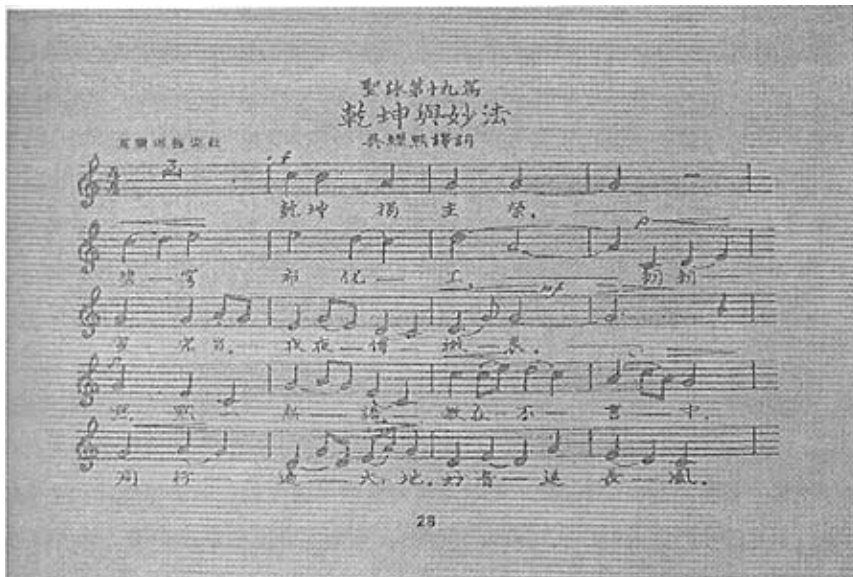 聖詠第十九篇
乾坤與妙法
吳經熊譯詞
乾坤揭主榮。
碧—穹 布化—工。 朝朝—
宣 宏旨。 夜夜—傳—微—衷。
默 默—無—語。 盡在—不—言—中。
周行— 遍—大—地。妙音—延 長—風。
28